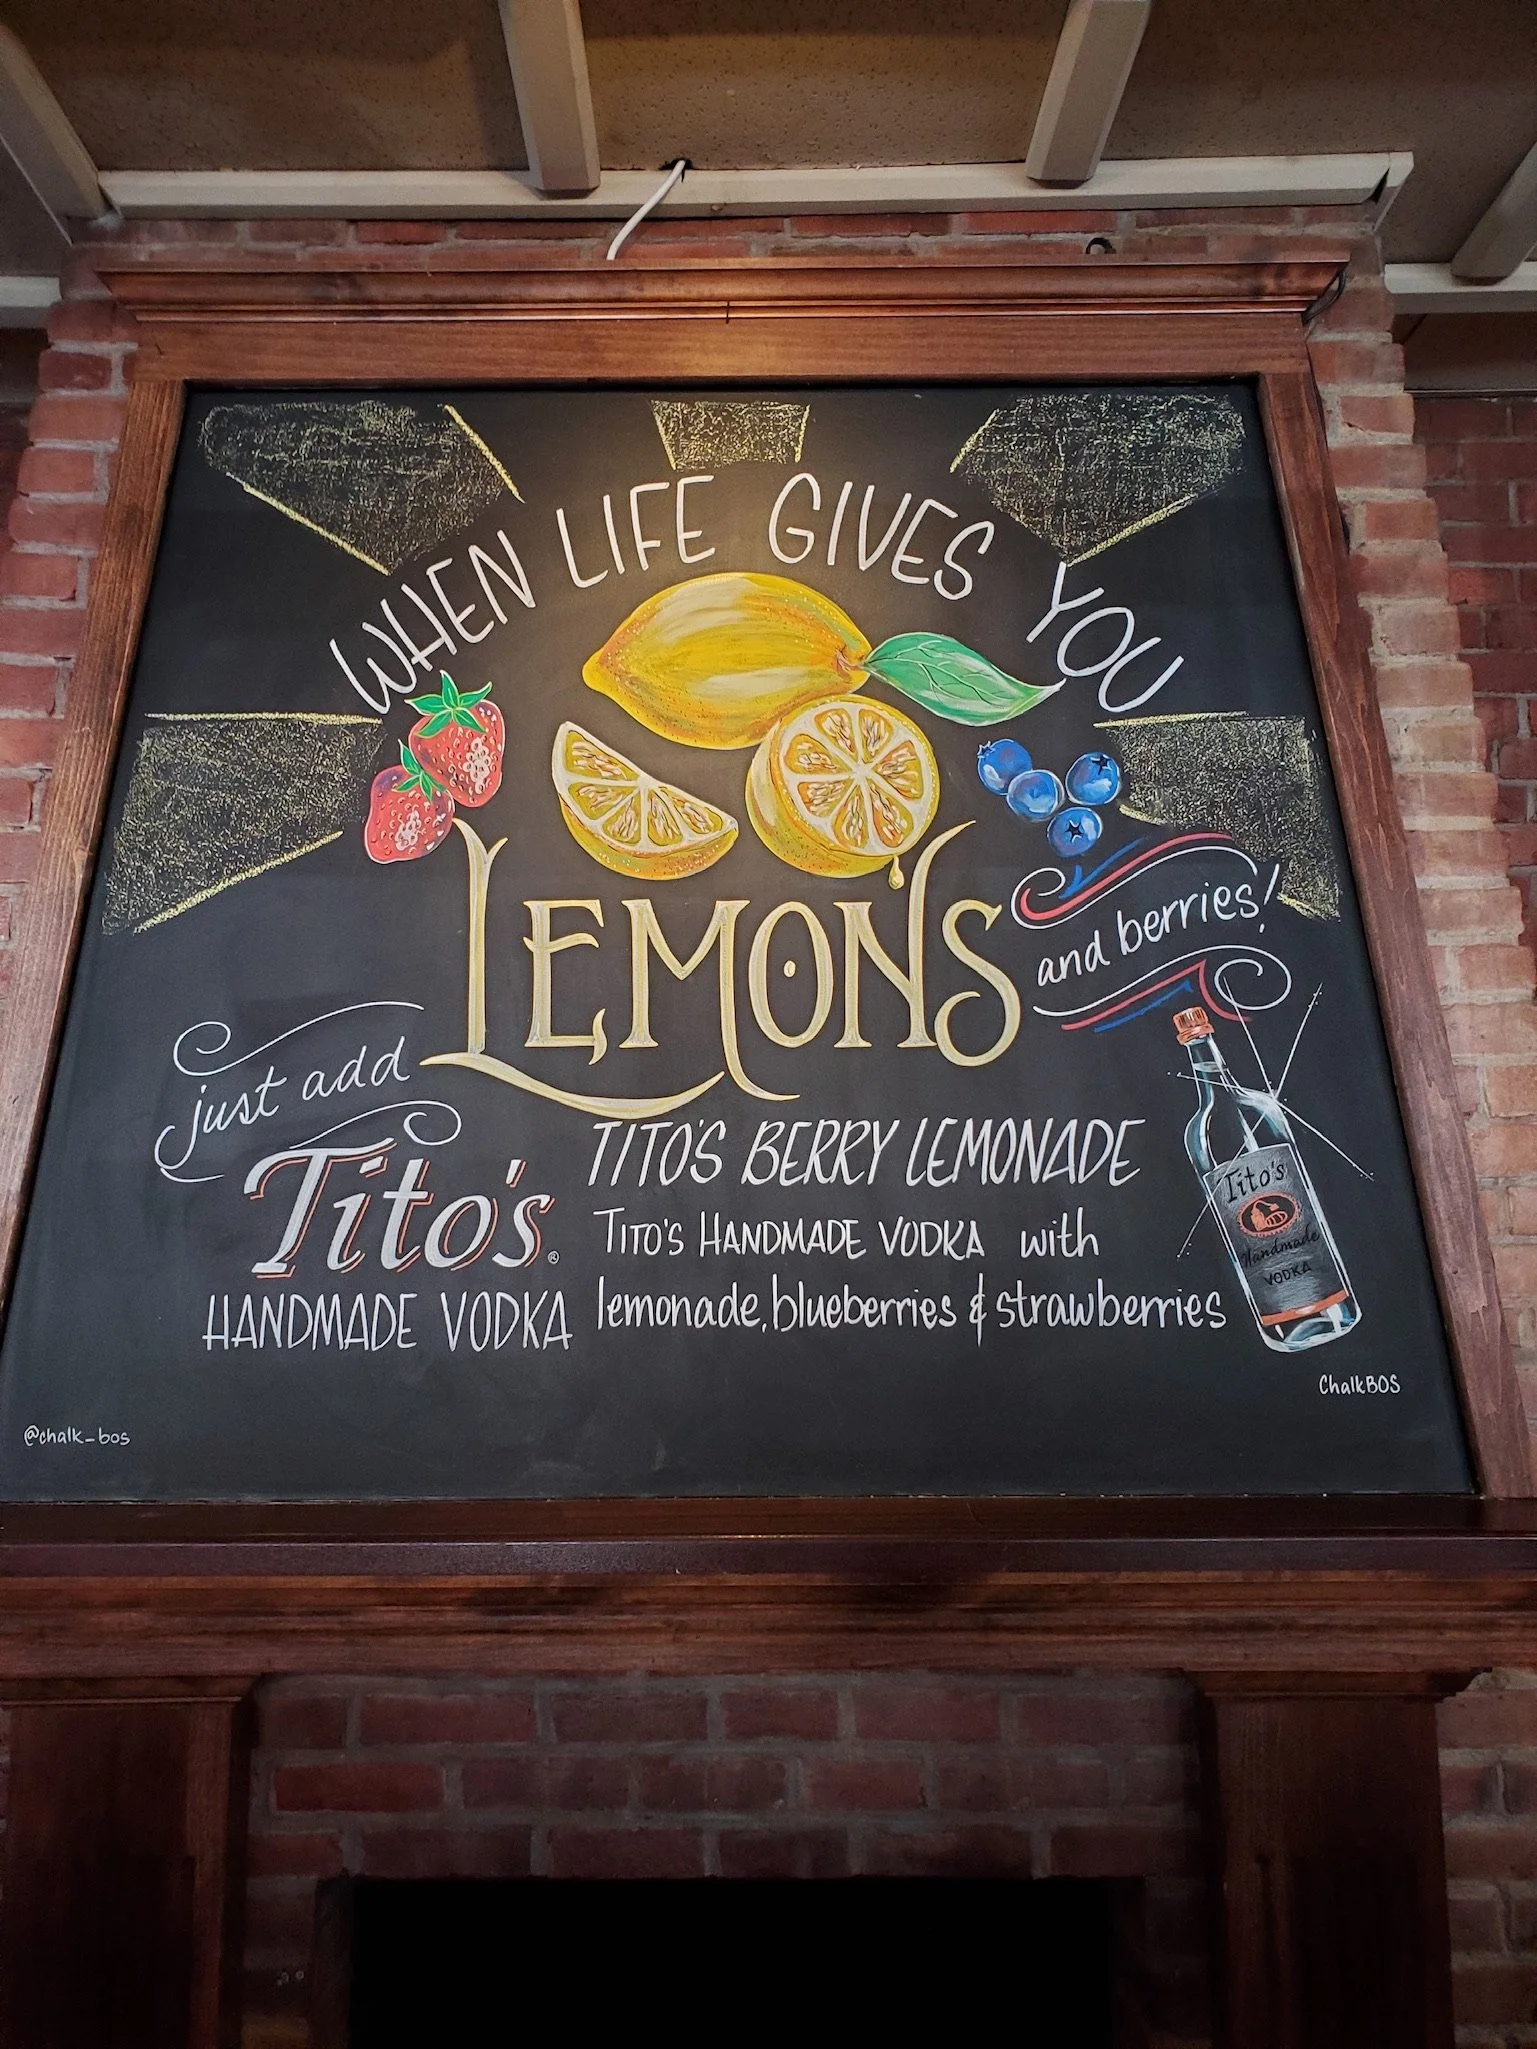 WHEN LIFE GIVES YOU
LEMONS
and berries!
just add
Tito's®
HANDMADE VODKA
TITO'S BERRY LEMONADE
TITO'S HANDMADE VODKA with
lemonade, blueberries & strawberries
Tito's
Handmade
VODKA
ChalkBOS
@chalk_bos